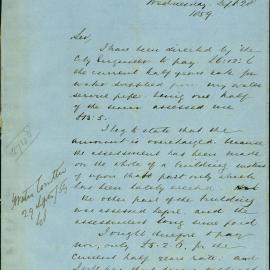 Wednesday, Septr 28
1859
Sir,
I have been directed by the
City Engineer to pay £6:12:6
the current half years rate for
water supplied from my water
service pipe being one half
of the sum assessed viz
£13:5.
I beg to state that the
amount is overcharged because
the assessment has been made
on the whole of a building instead
of upon that part only which
has been lately erected
the other part of the building
was assessed before and the
assessment long since paid
I ought therefore to pay
now, only £5.2.0 for the
current half years rate: and
Water Comttee
29 Sept/59